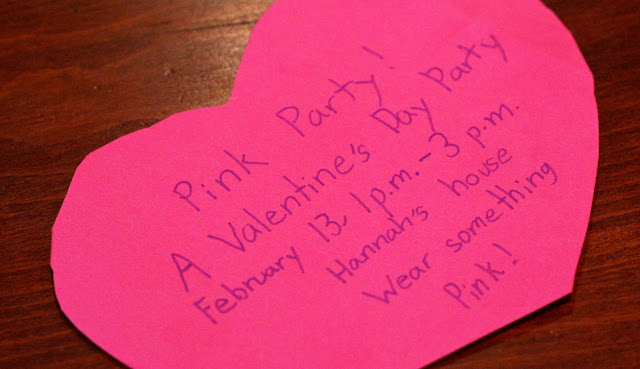 Pink Party!
A Valentine's Day Party
February 13, 1p.m.-3 p.m.
Hannah's house
Wear something
Pink!